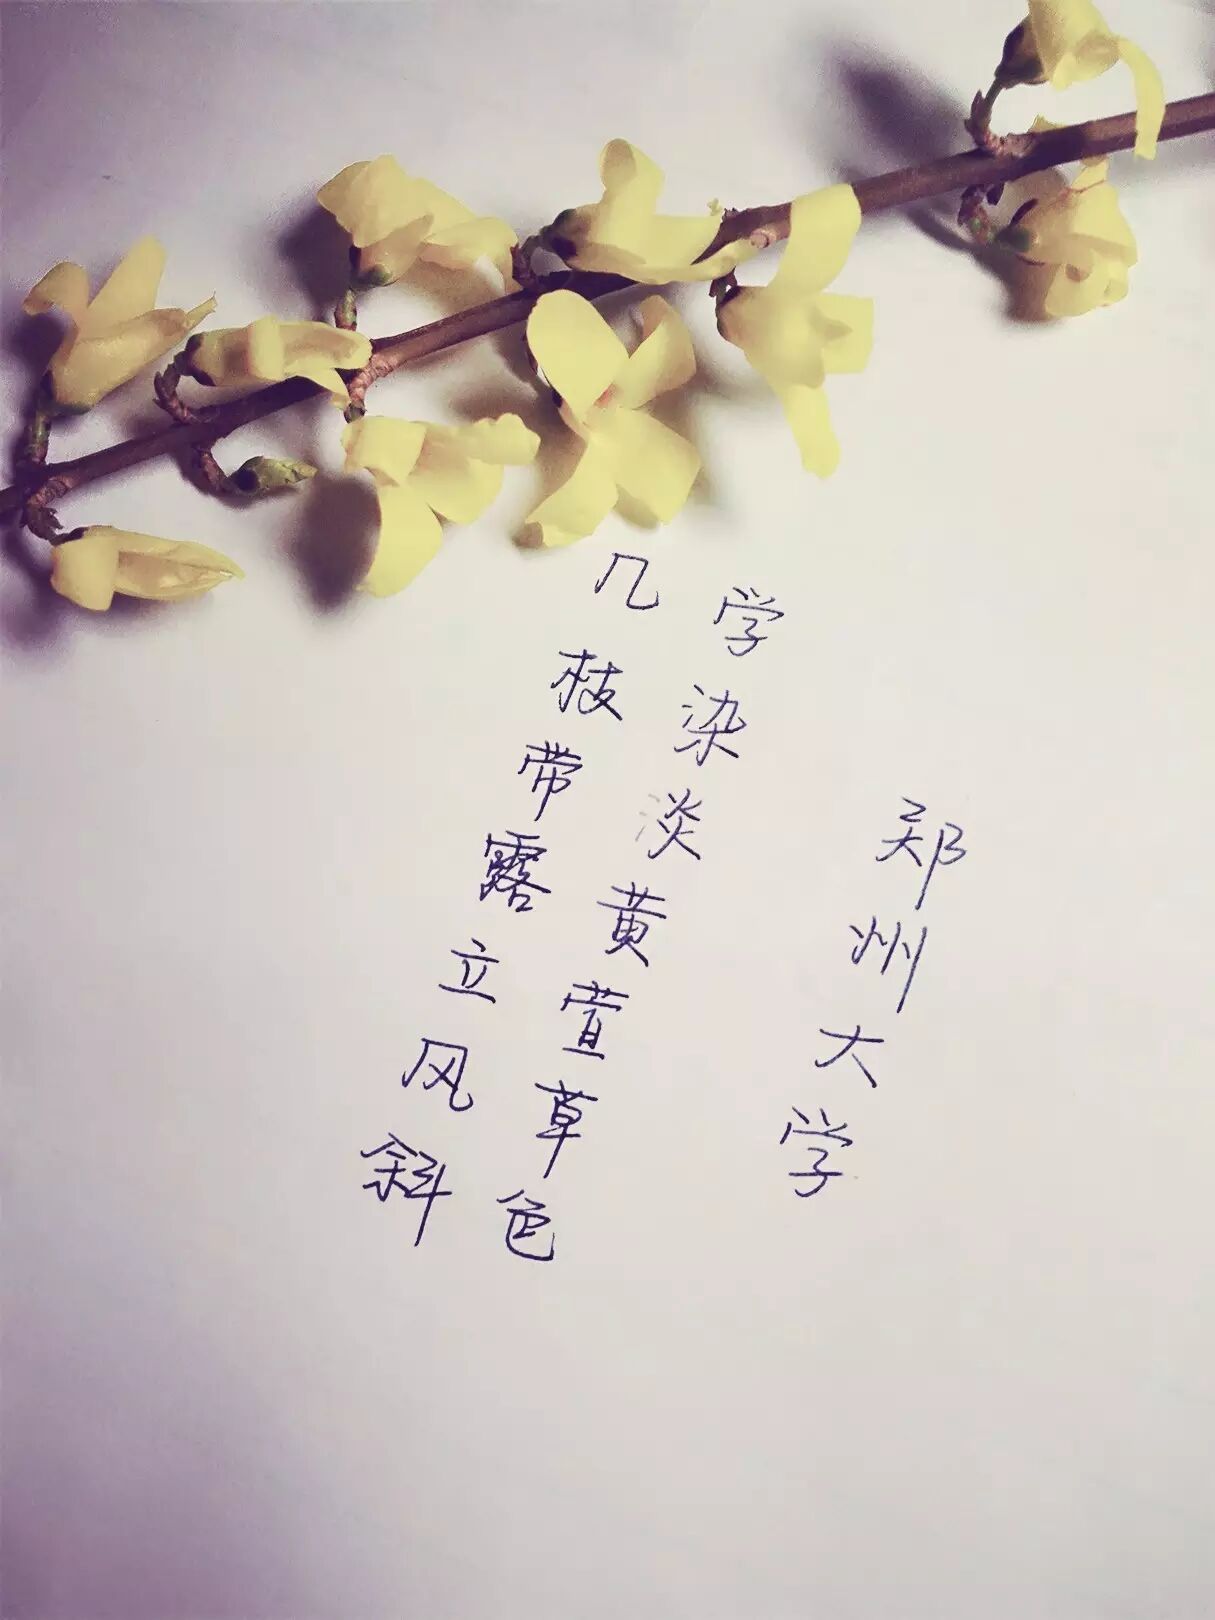 郑州大学
学染淡黄萱草色
几枝带露立风斜